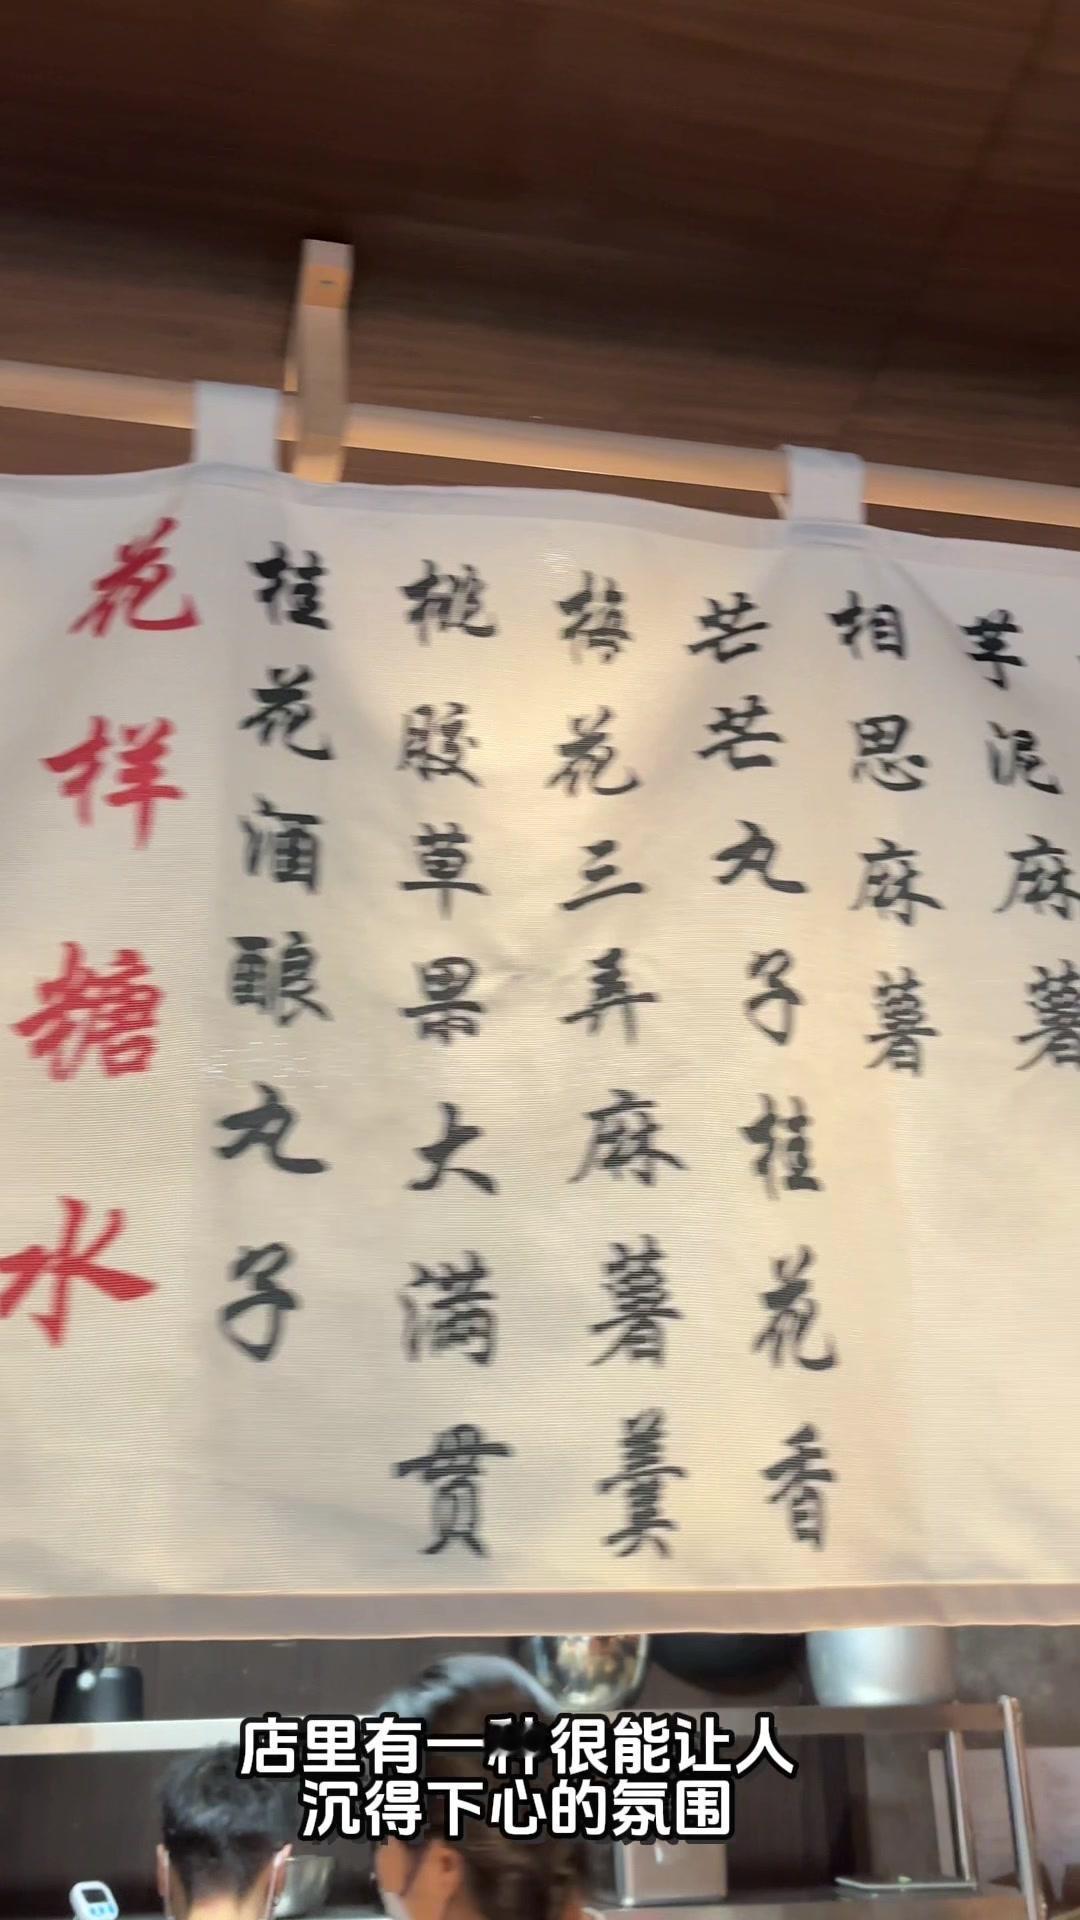 花样糖水
桂花酒酿丸子
桃胶草果大满贯
梅花三弄麻薯羹
芒芒丸子桂花香
相思麻薯
芋泥麻薯
店里有一种很能让人
沉得下心的氛围